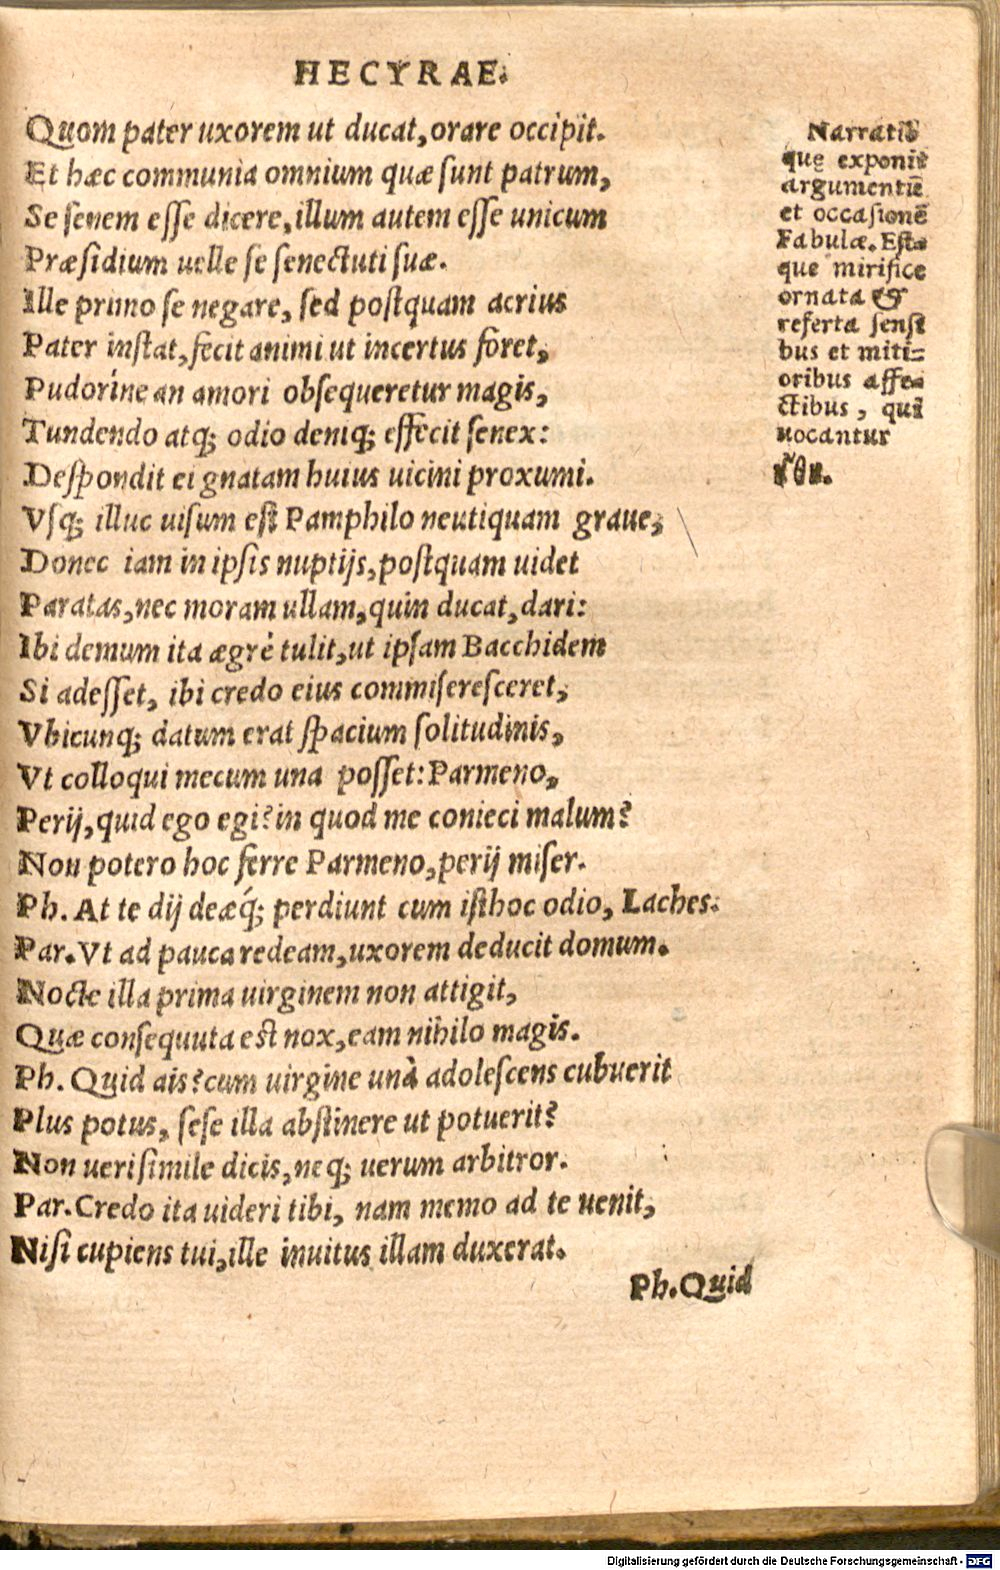 HECYRAE.
Quom pater uxorem ut ducat, orare occipit.
Et hæc communia omnium quæ sunt patrum,
Se senem esse dicere, illum autem esse unicum
Præsidium uelle se senectuti suæ.
Ille primo se negare, sed postquam acrius
Pater instat, fecit animi ut incertus foret,
Pudoríne an amori obsequeretur magis,
Tundendo atq; odio deniq; effecit senex:
Despondit ei gnatam huius uicini proxumi.
Vsq; illuc uisum est Pamphilo neutiquam graue,
Donec iam in ipsis nuptijs, postquam uidet
Paratas, nec moram ullam, quin ducat, dari:
Ibi demum ita ægrè tulit, ut ipsam Bacchidem
Si adesset, ibi credo eius commiseresceret,
Vbicunq; datum erat spacium solitudinis,
Vt colloqui mecum una posset: Parmeno,
Perij, quid ego egi? in quod me conieci malum?
Non potero hoc ferre Parmeno, perij miser.
Ph. At te dij deæq́; perdiunt cum isthoc odio, Laches.
Par. Vt ad pauca redeam, uxorem deducit domum.
Nocte illa prima uirginem non attigit,
Quæ consequuta est nox, eam nihilo magis.
Ph. Quid ais? cum uirgine unà adolescens cubuerit
Plus potus, sese illa abstinere ut potuerit?
Non uerisimile dicis, neq; uerum arbitror.
Par. Credo ita uideri tibi, nam nemo ad te uenit,
Nisi cupiens tui, ille inuitus illam duxerat.
Ph. Quid
Narratio
quę exponit
argumentū
et occasionē
Fabulæ. Est-
que mirifice
ornata &
referta sensi
bus et miti=
oribus affe-
ctibus, quĩ
uocantur
ἤθη.
Digitalisierung gefördert durch die Deutsche Forschungsgemeinschaft - DFG